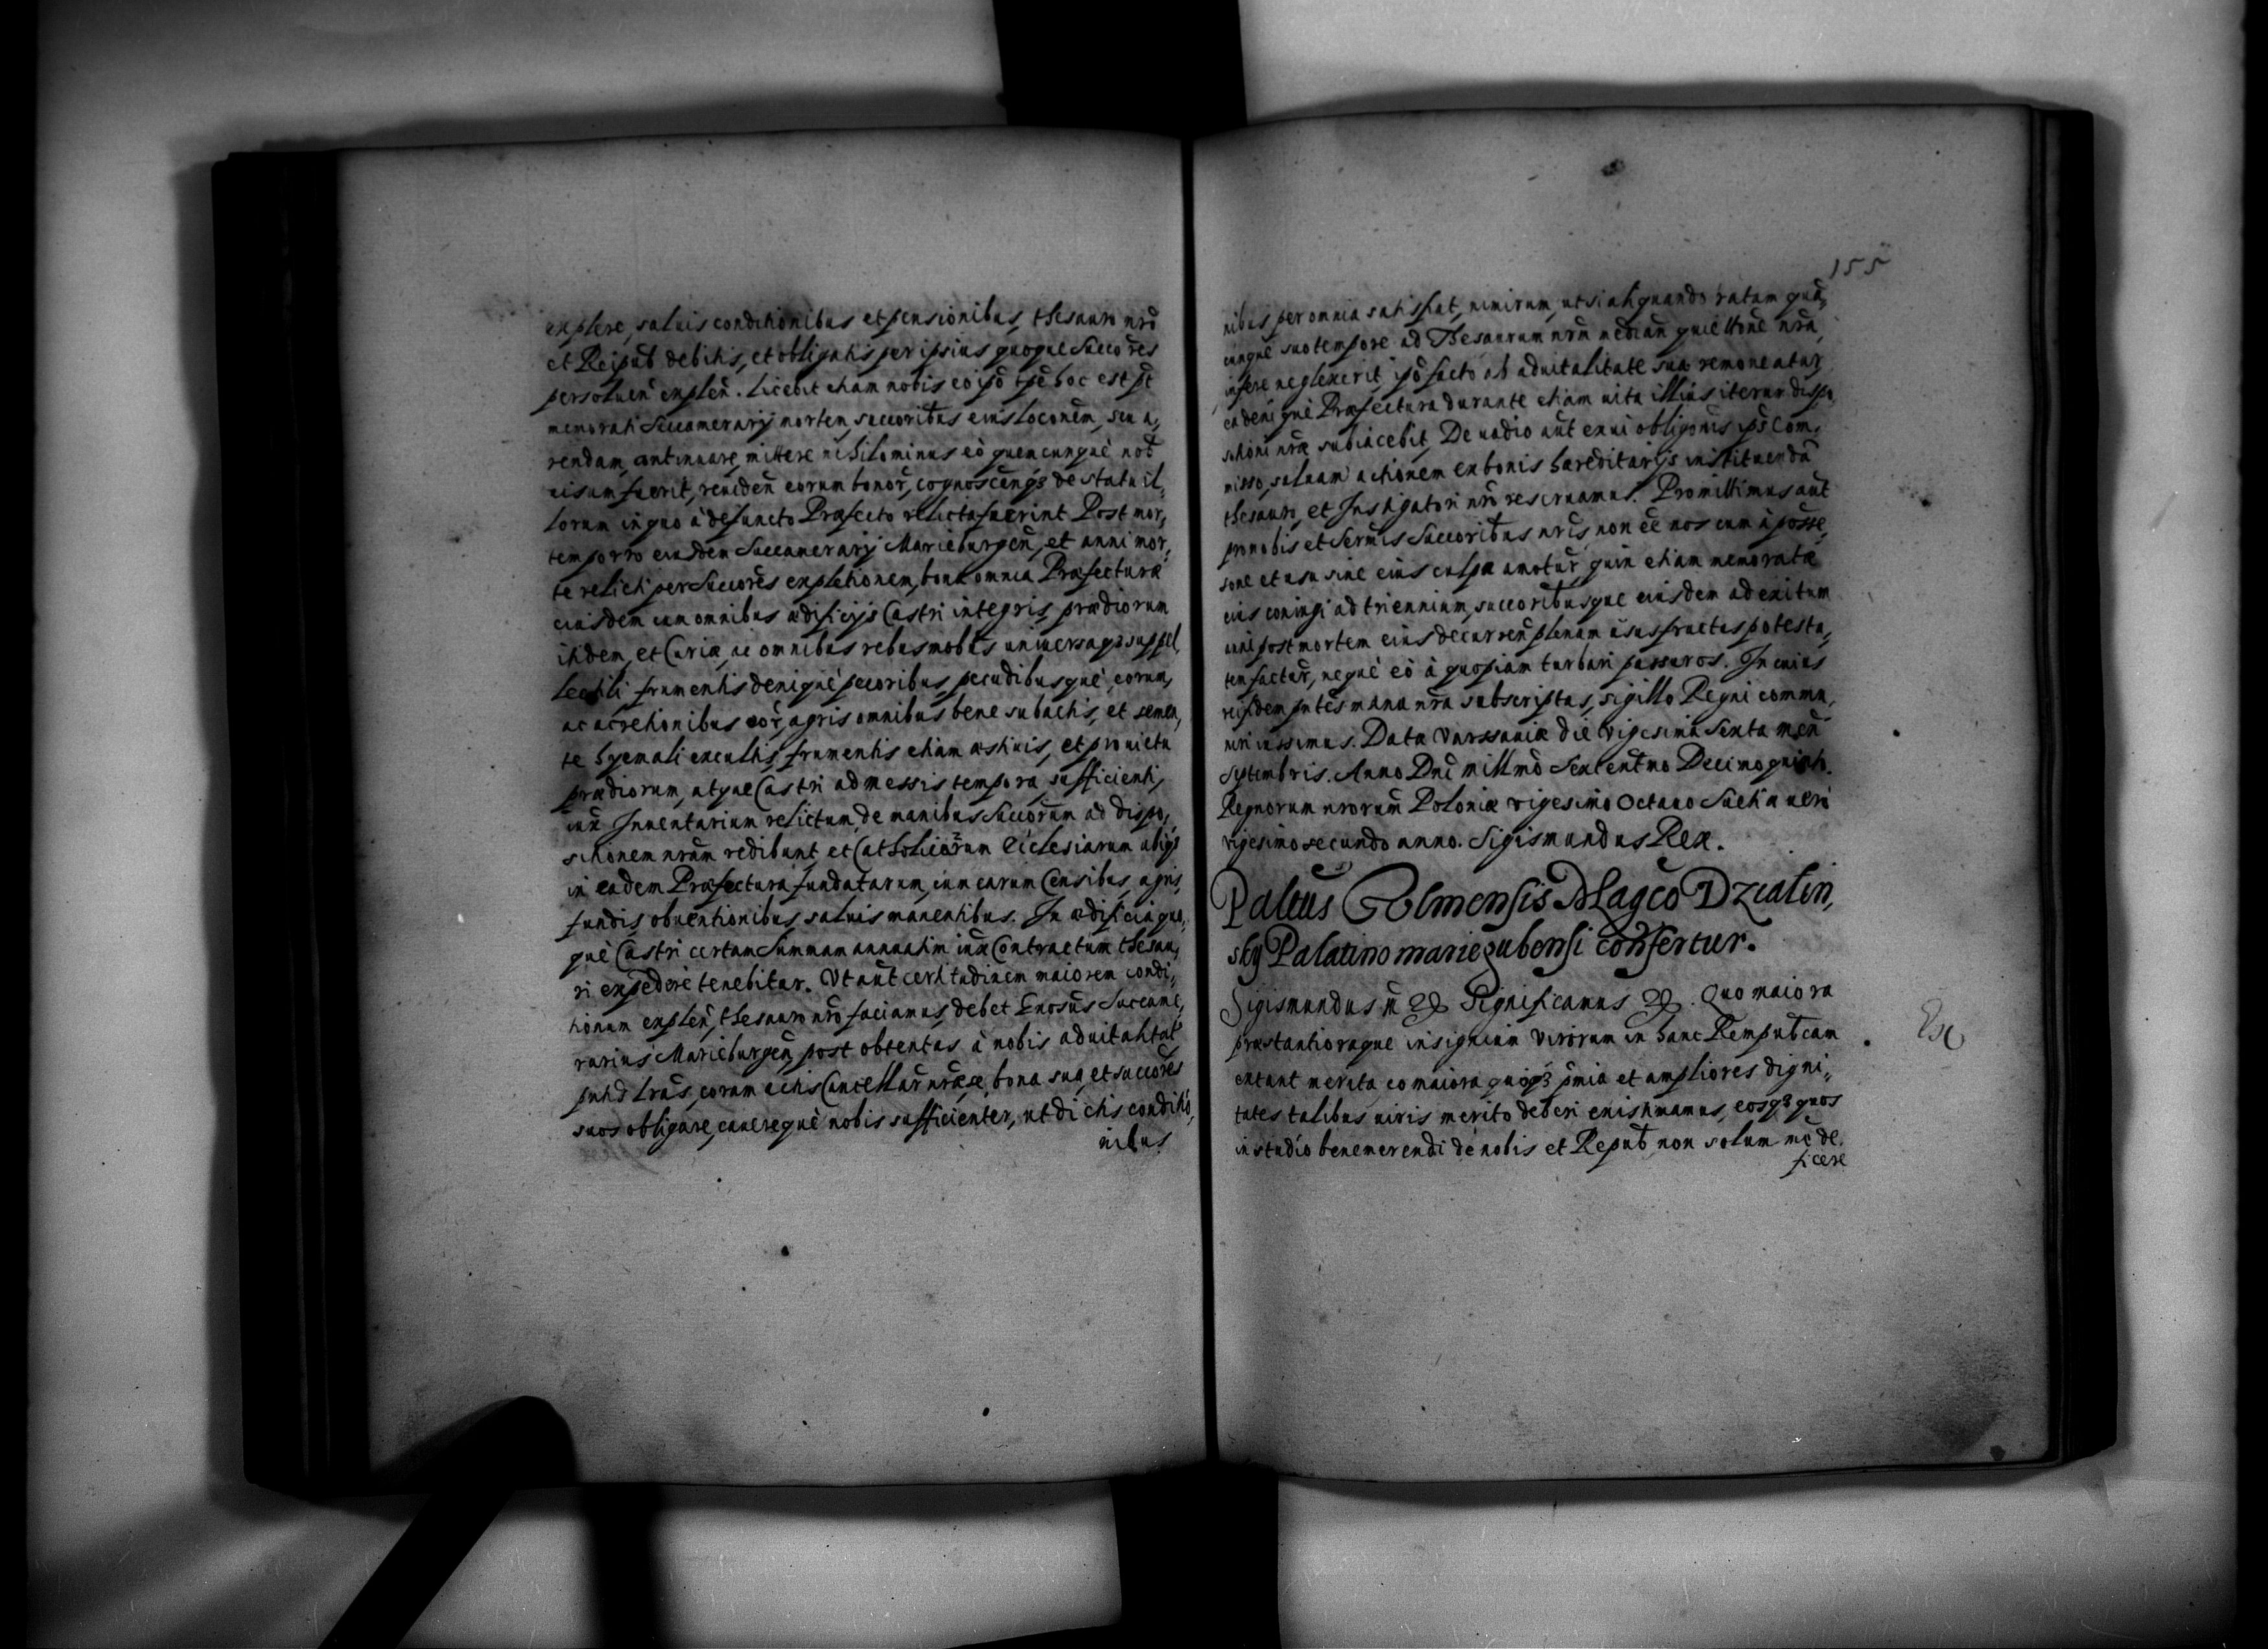 explere, saluis conditionibus et pensionibus, thesauro nrō
et Reipub debitis, et obligatis per ipsius quoque Succōres
persoluen̄ explen̄. Licebit etiam nobis eō ipō tpē hoc est pt
memorati Succamerarij mortem, succoribus eius loconēm, seu a,,
rendam, continuare, mittere nihilominus eò quemcunquè nob
uisum fuerit, reuiden̄ eorum bonor̄, cognoscenq3 de statu il,,
lorum in quo à defuncto Præfecto relicta fuerint Post mor,,
tem porro eiusdem Succamerarij Marieburgen̄, et anni mor,,
te relicti per Succorēs expletionem, bona omnia Præfecturæ
eiusdem cum omnibus ædificijs Castri integris, prædiorum
itidem, et Curiæ, ac omnibus rebus mobūs uniuersaq3 suppel,
lectili frumentis deniquè pecoribus, pecudibusquè, eorum,
ac acretionibus eor̄, agris omnibus bene subactis, et semen,
te hyemali excultis, frumentis etiam æstiuis, et prouictu
prædiorum, atque Castri ad messis tempora, sufficienti,
iux Inuentarium relictum, de manibus Succorum ad dispo,
sitionem nrām redibunt, et Catholicorum Ecclesiarum ubiq3
in eadem Præfectura fundatarum, cum earum Censibus, agris,
fundis, obuentionibus, saluis manentibus. In ædificia quo,,
què Castri certam Summam annuatim iux Contractum thesau,
ri expedere tenebitur. Vt aūt certitudinem maiorem condi,,
tionum explen̄, thesauro nrō faciamus, debet Gnosūs Succame,
rarius Marieburgen̄, post obtentas à nobis aduitalitat
pntīs Lrās, coram actis Cancellar nræ, se, bona sua, et succorēs
suos obligare, cauerequè nobis sufficienter, ut dictis conditio,
nibus
155
nibus per omnia satisfiat, nimirum, ut si aliquando ratam quā,,
cunquè suo tempore ad Thesaurum nrm̄ median̄ quiettōne nrā,
inferre neglexerit, ipō facto ab aduitalitate sua remoneatur,
eademquè Præfectura durante etiam uita illius iterum dispo,
sitioni nræ subiacebit, De uadio aūt ex ui obligōnis ipō Com,,
misso, saluam actionem ex bonis hæreditarijs instituendā
thesauro, et Instigatori nrō reseruamus. Promittimus aūt
pro nobis et Sermīs Succoribus nrīs, non eē nos eum à posse,
sione et usu sine eius culpa amotur̄, quin etiam memoratæ
eius coniugi ad triennium, succoribusque eiusdem ad exitum
anni post mortem eius decurren̄ plenam usus fructus potesta,,
tem factur̄, nequè eò à quopiam turbari passuros. In cuius
rei fidem pntēs manu nrā subscriptas, sigillo Regni commu,,
niri iussimus. Data Varssauiæ die Vigesima Sexta men̄
Septembris. Anno Dnī Millmō Sexcentmo Decimo quinto.
Regnorum nrorum Poloniæ vigesimo Octauo Suetiæ uerò
vigesimo secundo anno. Sigismundus Rex.
Paltūs Colmensis Magco Dzialin,
sky Palatino mariegubensi confertur.
Sigismundus III Significamus. Quo maiora
præstantioraque insignium Virorum in hanc Rempubcam
extant merita, eo maiora quoq3 pmia et ampliores digni,,
tates talibus uiris merito deberi existimamus, eosq3 quos
in studio benemerendi de nobis et Repub non solum nō de
ficere